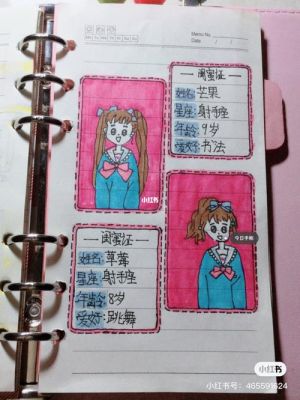 Memo No.
Date / /
Mo Tu We Th Fr Sa Su
闺蜜证
姓名:芒果
星座:射手座
年龄:9岁
爱好:书法
小红书
今日手帐
闺蜜证
姓名:草莓
星座:射手座
年龄:8岁
爱好:跳舞
小红书
小红书号:465591624